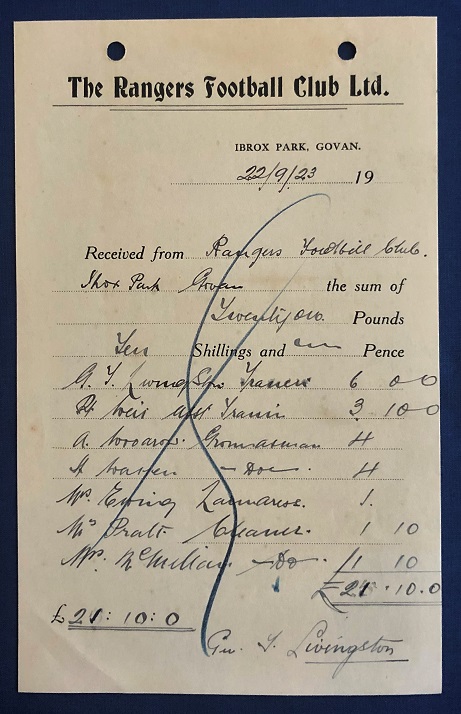 The Rangers Football Club Ltd.
IBROX PARK, GOVAN.
22/9/23 19
Received from Rangers Football Club.
Ibrox Park Govan the sum of
Twenty one Pounds
Ten Shillings and Pence
G. T. Livingston Trainer 6 00
R. Weir asst Trainer 3 100
A. Groundsman 4
Do 4
Mrs Ewing Laundress. 1.
Mrs Pratt Cleaner. 1 10
Mrs. McMillan Do 1 10
£21.10.0
£21:10:0
Geo. T. Livingston